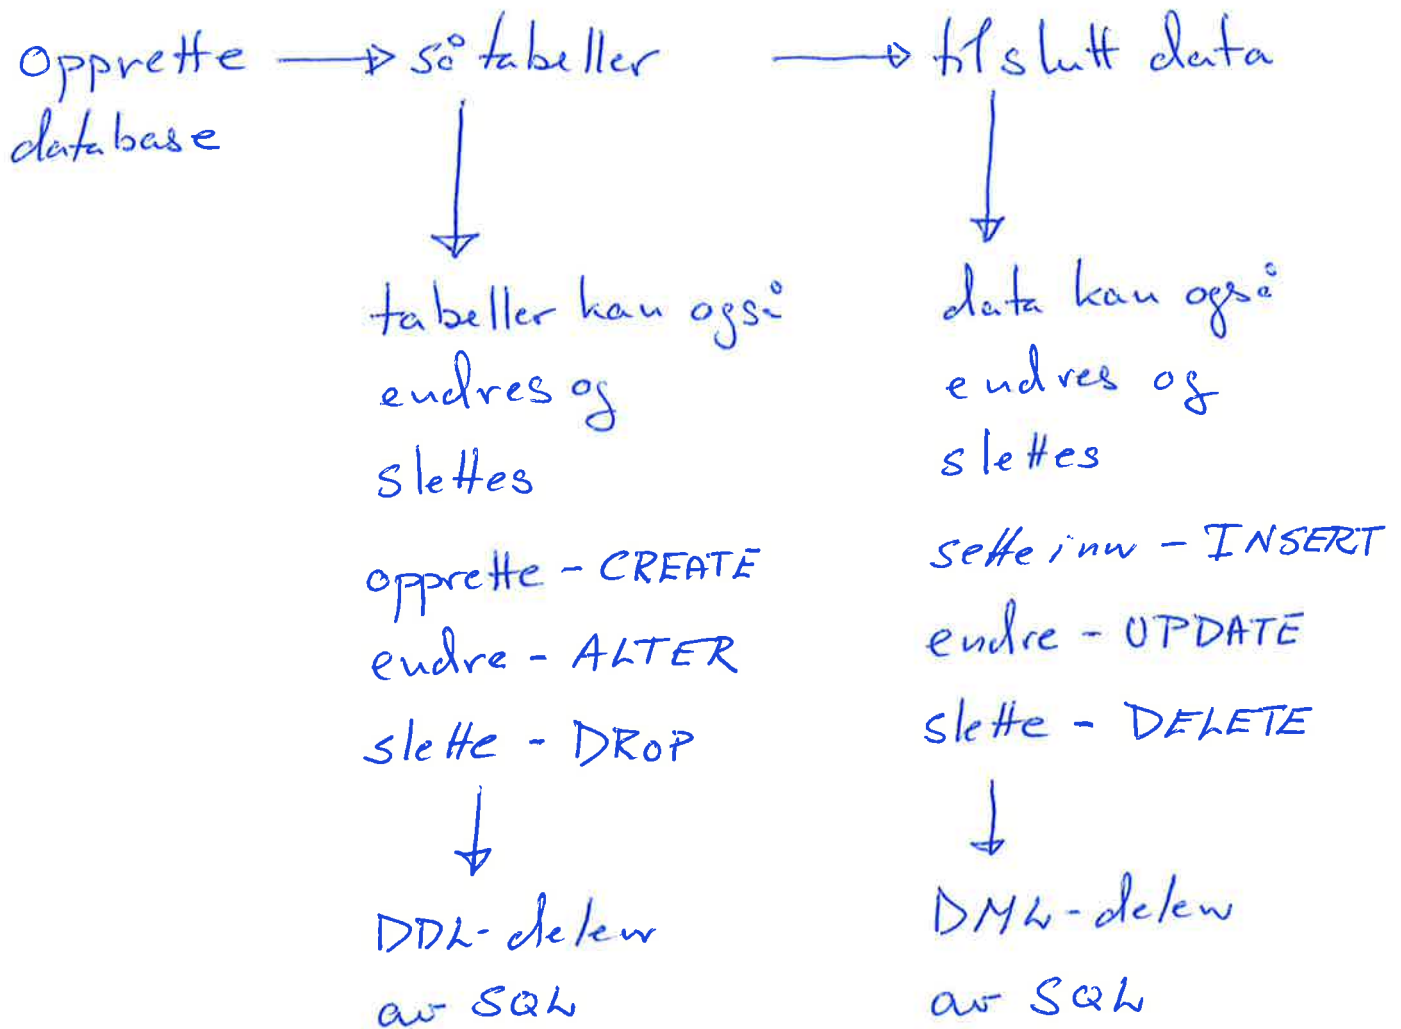 Opprette → så tabeller → til slutt data
database
tabeller kan også
endres og
slettes
opprette - CREATE
endre - ALTER
slette - DROP
DDL-delen
av SQL
data kan også
endres og
slettes
sette inn - INSERT
endre - UPDATE
slette - DELETE
DML-delen
av SQL